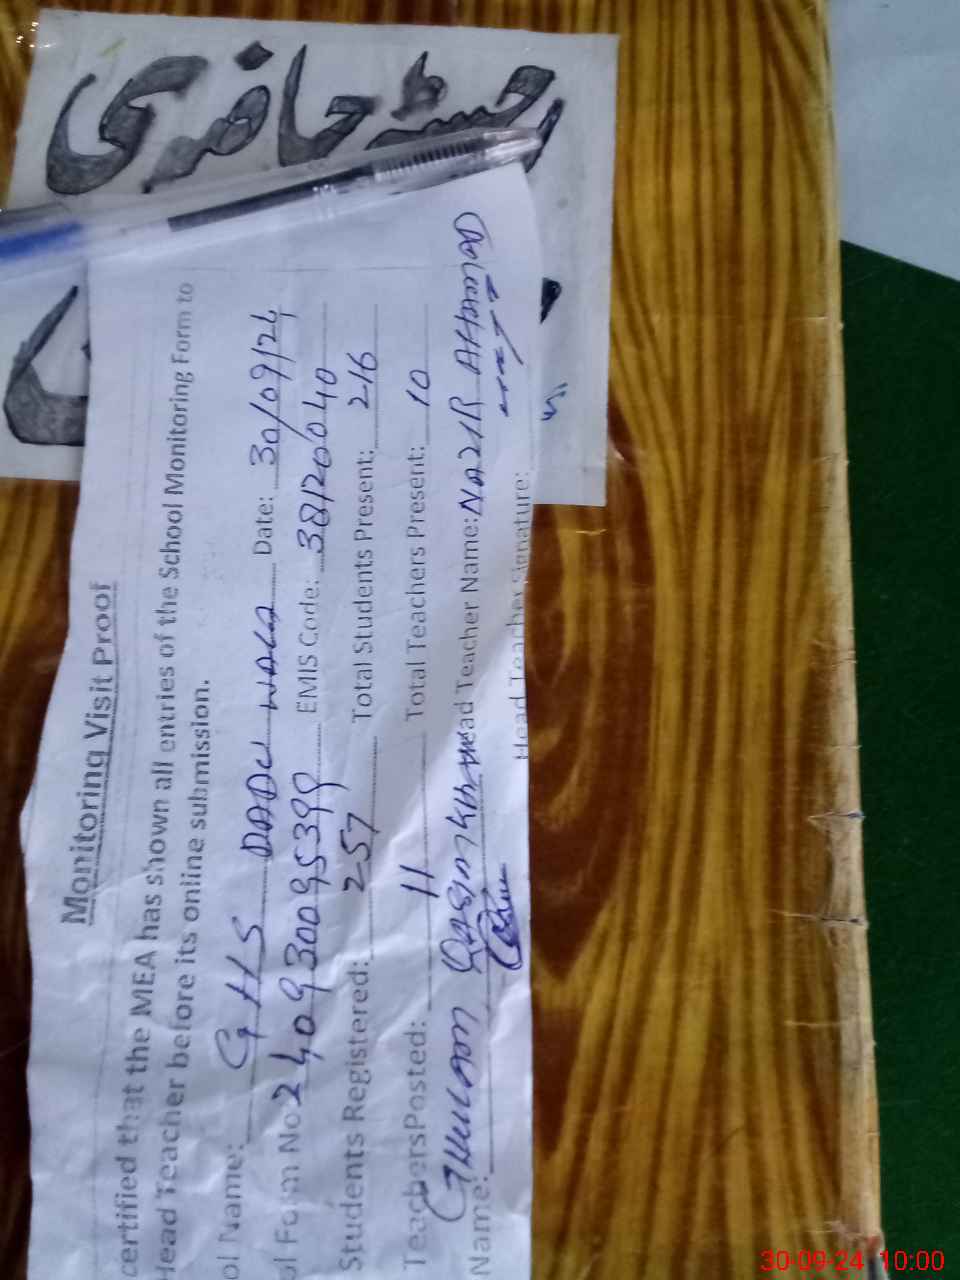 رجسٹر حاضری
Monitoring Visit Proof
certified that the MEA has shown all entries of the School Monitoring Form to
Head Teacher before its online submission.
ol Name: GHS DADU WALA Date: 30/09/24
ol Form No: 240930095399 EMIS Code: 38120040
Students Registered: 257 Total Students Present: 216
Teachers Posted: 11 Total Teachers Present: 10
Name: Head Teacher Name: NAZIR AHMAD
Head Teacher Signature:
30-09-24 10:00